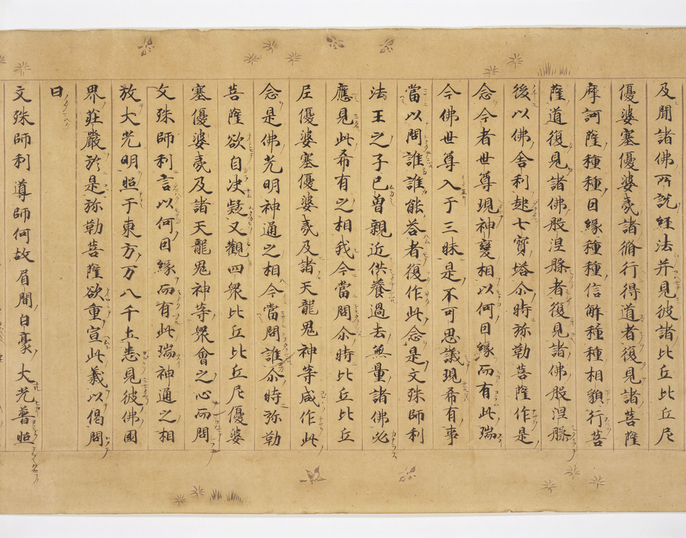 及聞諸佛所說經法并見彼諸比丘比丘尼
優婆塞優婆夷諸修行得道者復見諸菩薩
摩訶薩種種因緣種種信解種種相貌行菩
薩道復見諸佛般涅槃者復見諸佛般涅槃
後以佛舍利起七寶塔尒時弥勒菩薩作是
念今者世尊現神變相以何因緣而有此瑞
今佛世尊入于三昧是不可思議現希有事
當以問誰誰能荅者復作此念是文殊師利
法王之子已曾親近供養過去無量諸佛必
應見此希有之相我今當問尒時比丘比丘
尼優婆塞優婆夷及諸天龍鬼神等咸作此
念是佛光明神通之相今當問誰尒時弥勒
菩薩欲自決疑又觀四衆比丘比丘尼優婆
塞優婆夷及諸天龍鬼神等衆會之心而問
文殊師利言以何因緣而有此瑞神通之相
放大光明照于東方万八千土悉見彼佛國
界莊嚴於是弥勒菩薩欲重宣此義以偈問
曰
文殊師利 導師何故 眉間白豪 大光普照